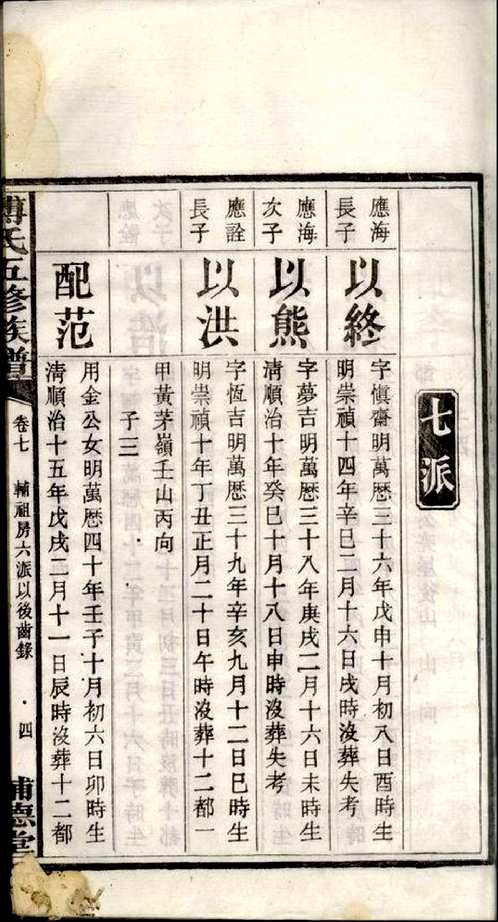 七派
應海長子
以終
字愼齋明萬歷三十六年戊申十月初八日酉時生
明崇禎十四年辛巳二月十六日戌時沒葬失考
應海次子
以熊
字夢吉明萬歷三十八年庚戌二月十六日未時生
淸順治十年癸巳十月十八日申時沒葬失考
應詮長子
以洪
字恆吉明萬歷三十九年辛亥九月十二日巳時生
明崇禎十年丁丑正月二十日午時沒葬十二都一
甲黃茅嶺壬山丙向
子三
配范
用金公女明萬歷四十年壬子十月初六日卯時生
淸順治十五年戊戌二月十一日辰時沒葬十二都
氏五修族譜
卷七
輔祖房六派以後齒錄
四
德堂